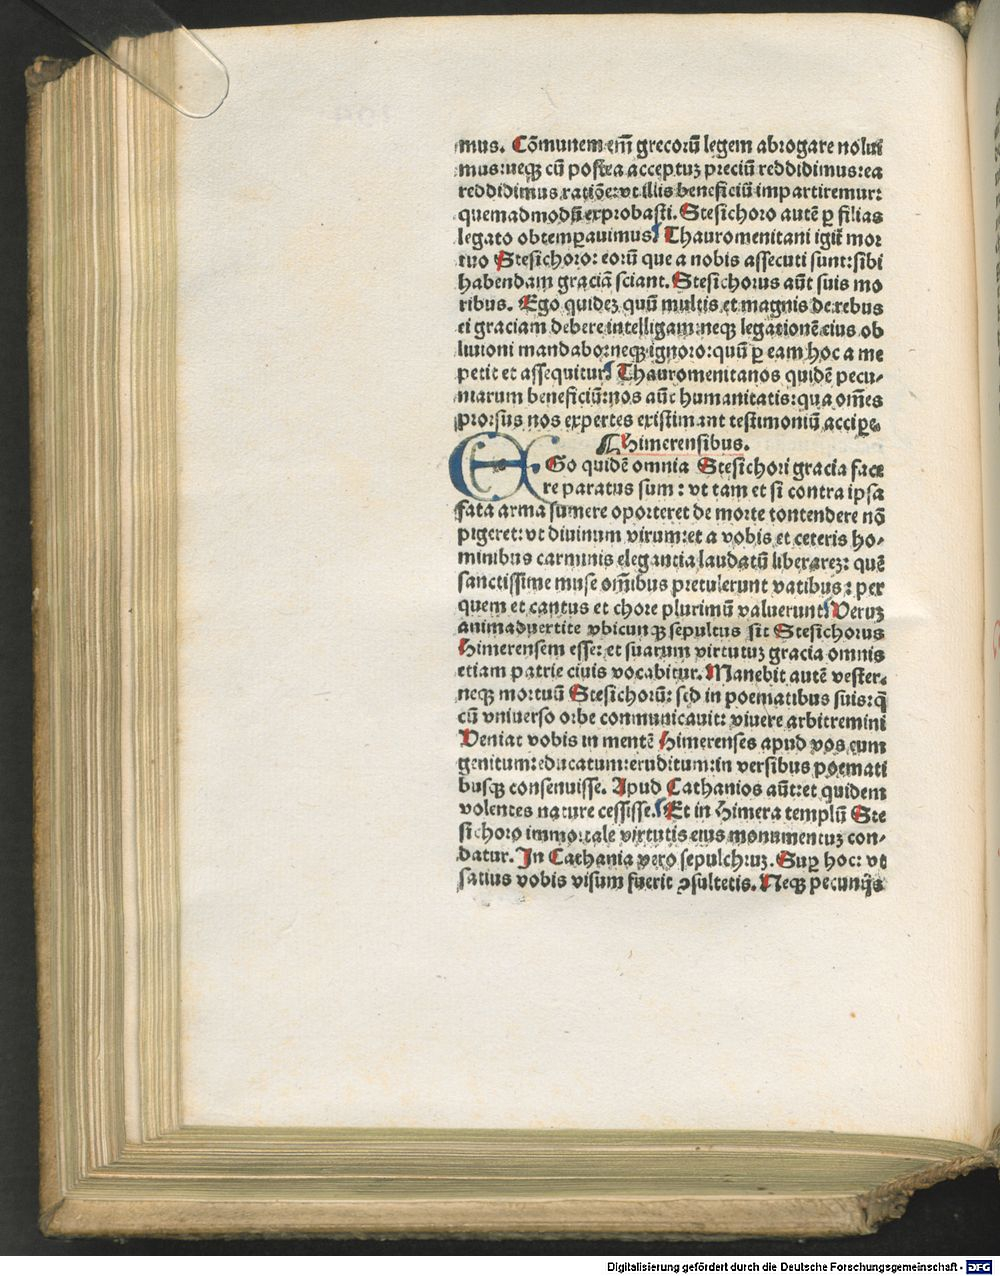 mus. Cōmunem em̄ grecorū legem abrogare nolui
mus: neqꝫ cū postea acceptuꝫ preciū reddidimus: ea
reddidimus ratiōe: vt illis beneficiū impartiremur:
quemadmodū exprobasti. Stesichoro autē ꝑ filias
legato obtemꝑauimus. Thauromenitani igit̄ mor
tuo Stesichoro: eorū que a nobis assecuti sunt: sibi
habendam graciā sciant. Stesichorus aūt suis mo
ribus. Ego quideꝫ quū multis et magnis de rebus
ei graciam debere intelligam: neqꝫ legationē eius ob
liuioni mandabo: neqꝫ ignoro: quū ꝑ eam hoc a me
petit et assequitur. Thauromenitanos quidē pecu-
niarum beneficiū: nos aūt humanitatis: qua om̄es
prorsus nos expertes existimant testimoniū acciꝑe.
Himerensibus.
EGo quidē omnia Stesichori gracia face
re paratus sum: vt tam et si contra ipsa
fata arma sumere oporteret de morte tontendere nō
pigeret: vt diuinum virum: et a vobis et ceteris ho-
minibus carminis elegantia laudatū liberareꝫ: quē
sanctissime muse om̄ibus pretulerunt vatibus: per
quem et cantus et chore plurimū valuerunt. Veruꝫ
animaduertite vbicunqꝫ sepultus sit Stesichorus
Himerensem esse: et suarum virtutuꝫ gracia omnis
etiam patrie ciuis vocabitur. Manebit autē vester.
neqꝫ mortuū Stesichorū: sed in poematibus suis: q̄
cū vniuerso orbe communicauit: viuere arbitremini
Veniat vobis in mentē Himerenses apud vos eum
genitum: educatum: eruditum: in versibus poemati
busqꝫ consenuisse. Apud Cathanios aūt: et quidem
volentes nature cessisse. Et in Himera templū Ste
sichoro immortale virtutis eius monumentuꝫ con-
datur. In Cathania vero sepulchruꝫ. Suꝑ hoc: vt
satius vobis visum fuerit ꝯsultetis. Neqꝫ pecunijs
Digitalisierung gefördert durch die Deutsche Forschungsgemeinschaft - DFG